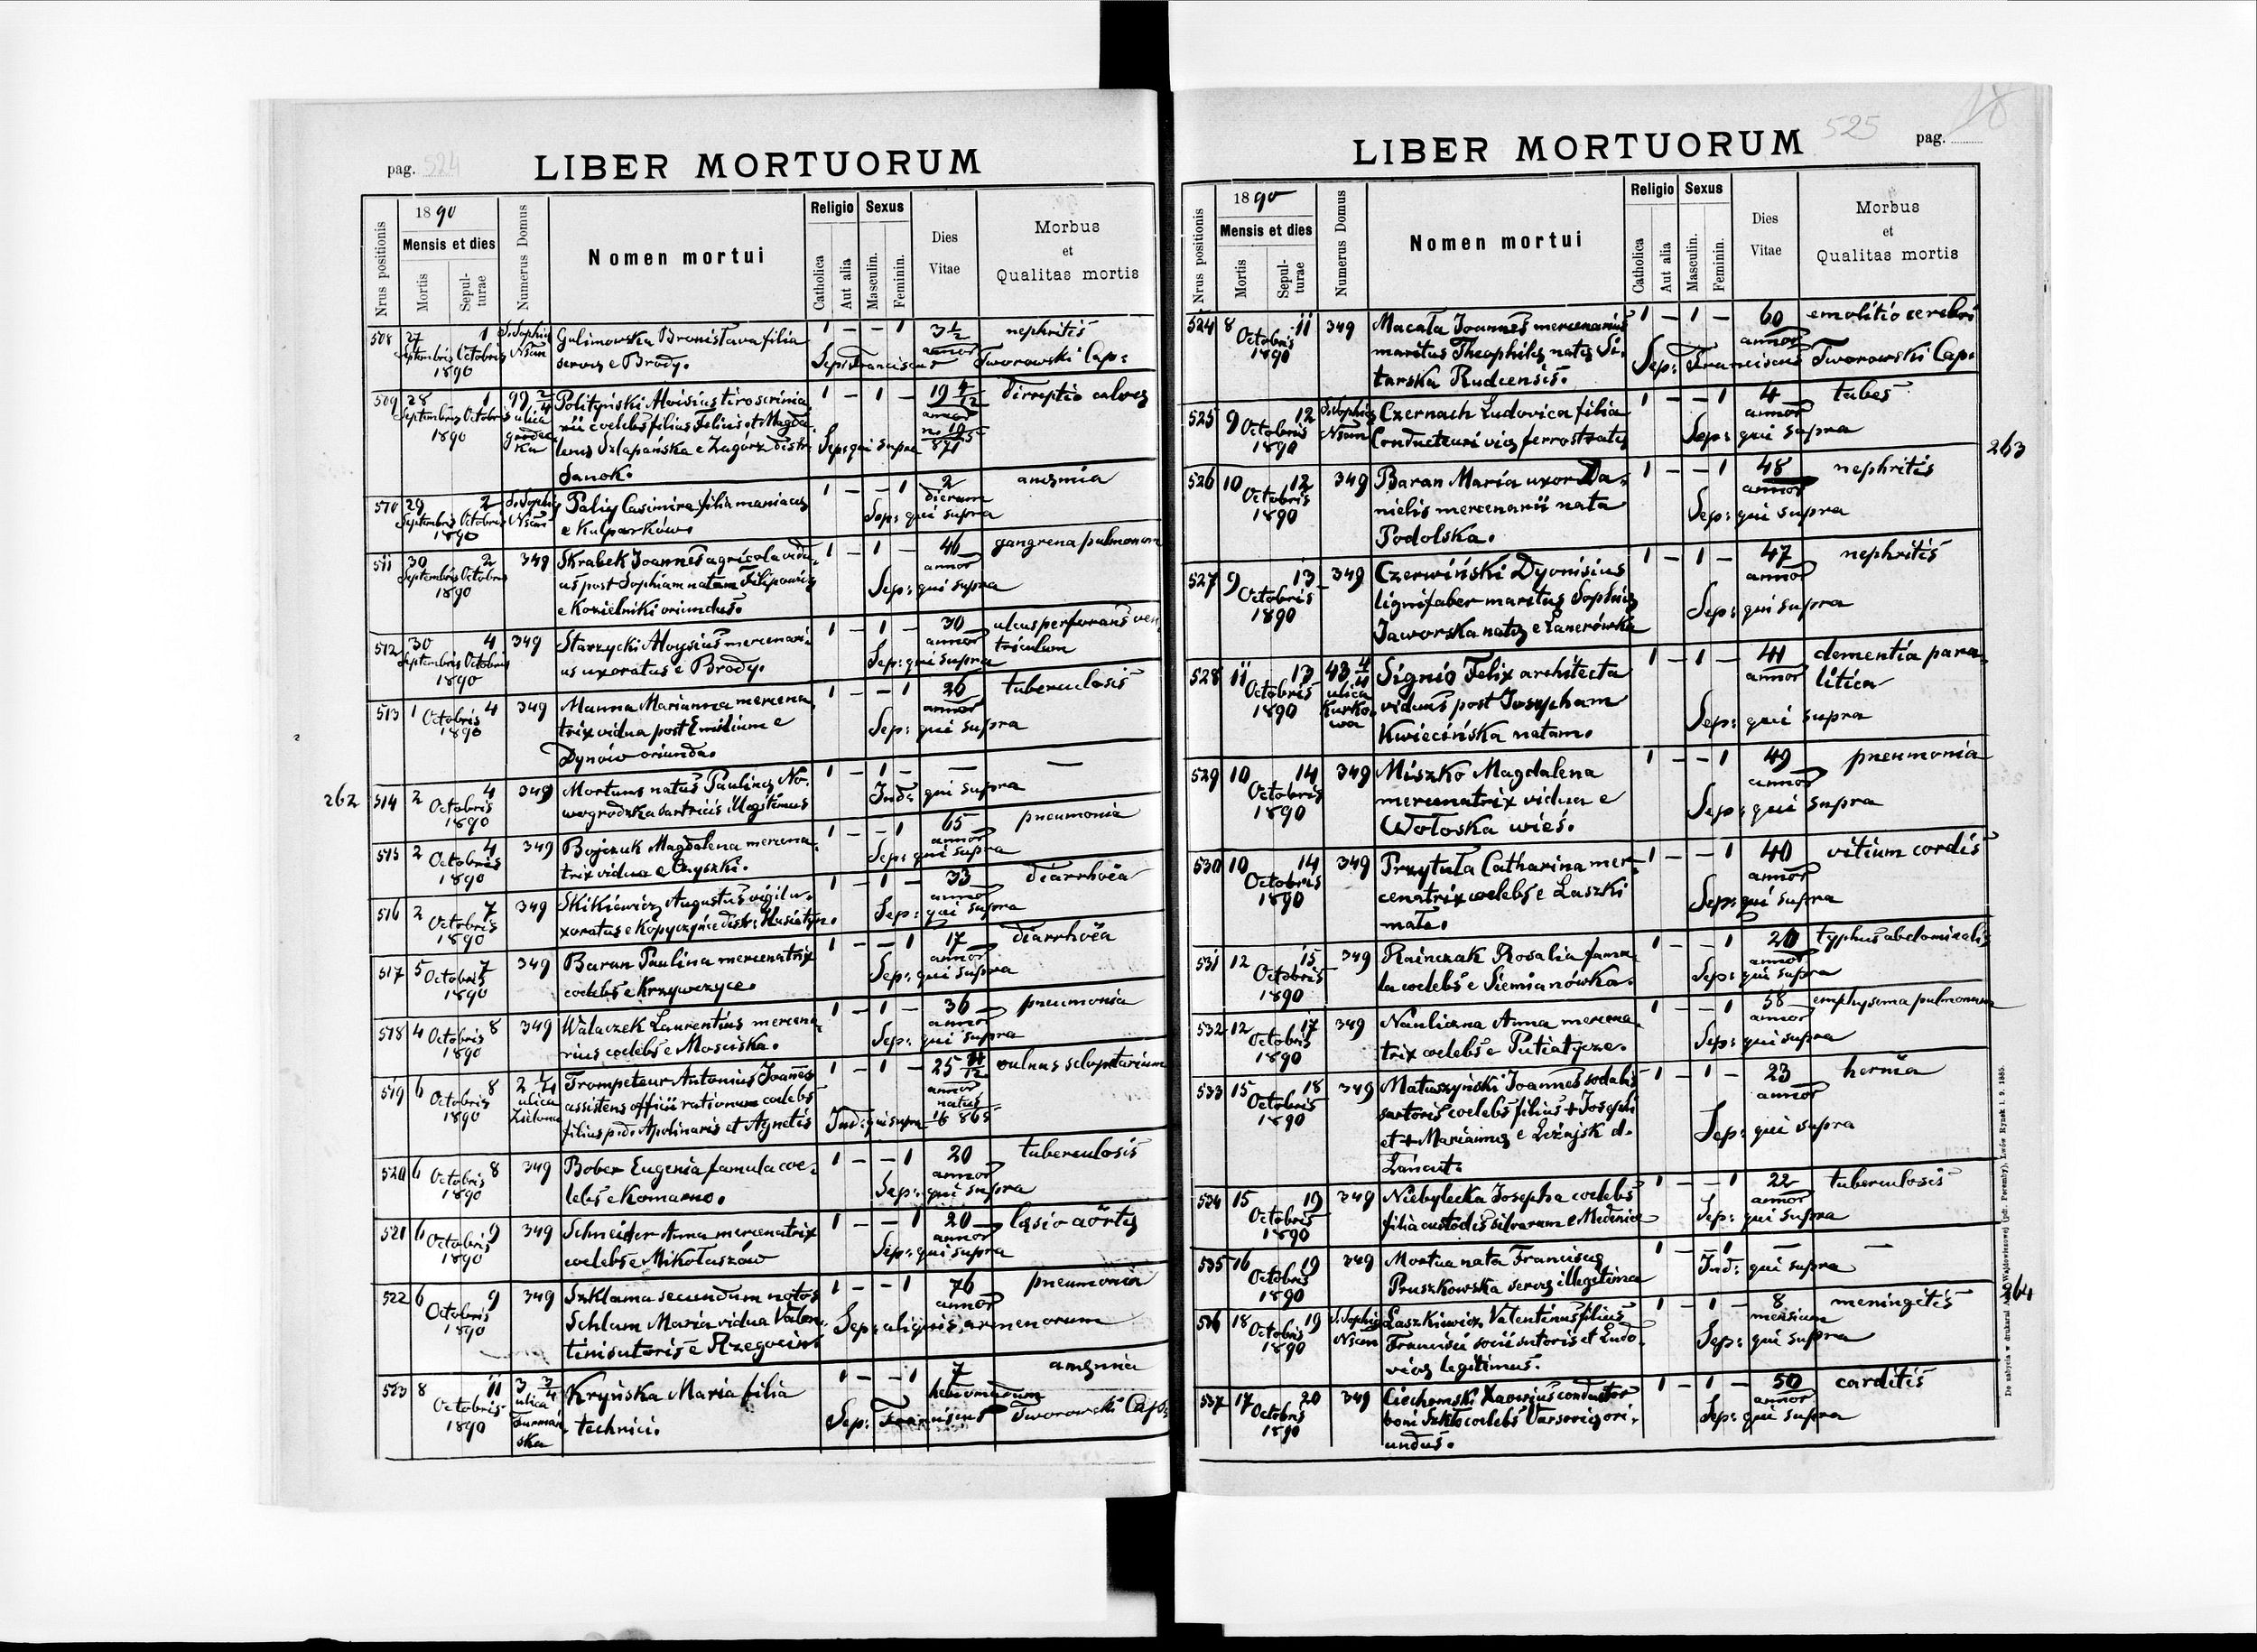 pag. 524
LIBER MORTUORUM
Nrus positionis
1890
Mensis et dies
Mortis
Sepulturae
Numerus Domus
Nomen mortui
Religio
Catholica
Aut alia
Sexus
Masculin.
Feminin.
Dies Vitae
Morbus
et
Qualitas mortis
508 27 Septembris 1 Octobris 1890 S. Sophia Nsan 1 – – 1 3 1/2 annor nephritis
Galimowska Bronislava filia
servæ e Brody.
Sep: Franciscus Tworowski Cap:
509 28 Septembris 1 Octobris 1890 99 2/4 ulica gródecka 1 – 1 – 19 4/12 annor direptio calvæ
Polityński Aloisius tiro scrinia
rii coelebs filius Felicis et Magda
lenæ Szlapańska e Zagórz distr
Sanok.
Sep: qui supra
510 29 Septembris 2 Octobris 1890 S. Sophia Nsan 1 – – 1 2 dierum anæmia
Paliy Casimira filia maniacæ
e Kulparków.
Sep: qui supra
511 30 Septembris 2 Octobris 1890 349 1 – 1 – 46 annor gangrena pulmonum
Skrabek Joannes agricola vidu
us post Sophiam natam Filipowicz
e Kozielniki oriundus.
Sep: qui supra
512 30 Septembris 4 Octobris 1890 349 1 – 1 – 30 annor ulcus perforans ven
triculum
Starzycki Aloysius mercenari
us uxoratus e Brody.
Sep: qui supra
513 1 Octobris 4 1890 349 1 – – 1 26 annor tuberculosis
Manna Marianna mercena
trix vidua post Emidium e
Dynów oriunda.
Sep: qui supra
262
514 2 Octobris 4 1890 349 1 – 1 – — —
Mortuus natus Paulinæ No.
wogrodzka sartricis illegitimus
Ind: qui supra
515 2 Octobris 4 1890 349 1 – – 1 65 annor pneumonia
Bojczuk Magdalena mercena
trix vidua e Czyszki.
Sep: qui supra
516 2 Octobris 7 1890 349 1 – 1 – 33 annor diarrhöea
Skikiewicz Augustus vigil u.
xoratus e Kopyczyńce distr: Husiatyn.
Sep: qui supra
517 5 Octobris 7 1890 349 1 – – 1 17 annor diarrhöea
Baran Paulina mercenatrix
coelebs e Krzywczyce.
Sep: qui supra
518 4 Octobris 8 1890 349 1 – 1 – 36 annor pneumonia
Walaczek Laurentius mercena
rius coelebs e Mościska.
Sep: qui supra
519 6 Octobris 8 1890 ulica Zielona 1 – 1 – 25 annor natus vulnus sclopetarium
Trompeteur Antonius Joannes
assistens officii rationum coelebs
filius p.d. Apolinaris et Agnetis
Ind: qui supra 16 865
520 6 Octobris 8 1890 349 1 – – 1 20 annor tuberculosis
Bober Eugenia famula coe
lebs e Komarno.
Sep: qui supra
521 6 Octobris 9 1890 349 1 – – 1 20 annor læsio aörtæ
Schneider Anna mercenatrix
coelebs e Mikołaszów
Sep: qui supra
522 6 Octobris 9 1890 349 1 – – 1 76 annor pneumonia
Szklama secundum notos
Schlam Maria vidua Valen
tini sutoris e Rzegocin
Sep: aliquis armenorum
523 8 Octobris 11 1890 3 3/4 ulica Furmańska 1 – – 1 7 hebdomadum anæmia
Kryńska Maria filia
technici.
Sep: Franciscus Tworowski Cap:
525
18
pag.
LIBER MORTUORUM
Nrus positionis
1890
Mensis et dies
Mortis
Sepulturae
Numerus Domus
Nomen mortui
Religio
Catholica
Aut alia
Sexus
Masculin.
Feminin.
Dies
Vitae
Morbus
et
Qualitas mortis
524 8 Octobris 11 1890 349 1 – 1 – 60 annor emolitio cerebri
Macała Joannes mercenarius
maritus Theophilæ natæ Si
tarska Rudcensis.
Sep: Franciscus Tworowski Cap:
525 9 Octobris 12 1890 S. Sophia Nsan 1 – – 1 4 annor tabes
Czernach Ludovica filia
Conducteuri viæ ferrostratæ
Sep: qui supra
263
526 10 Octobris 12 1890 349 1 – – 1 48 annor nephritis
Baran Maria uxor Da
nielis mercenarii nata
Podolska.
Sep: qui supra
527 9 Octobris 13 1890 349 1 – 1 – 47 annor nephritis
Czerwiński Dyonisius
lignifaber maritus Sophiæ
Jaworska natæ e Lanerówka
Sep: qui supra
528 11 Octobris 13 1890 ulica Kurkowa 1 – 1 – 41 annor dementia para
litica
Signio Felix architecta
viduus post Josepham
Kwiecińska natam.
Sep: qui supra
529 10 Octobris 14 1890 349 1 – – 1 49 annor pneumonia
Miszko Magdalena
mercenatrix vidua e
Wołoska wieś.
Sep: qui supra
530 10 Octobris 14 1890 349 1 – – 1 40 annor vitium cordis
Przytuła Catharina mer
cenatrix coelebs e Laszki
nata.
Sep: qui supra
531 12 Octobris 15 1890 349 1 – – 1 20 annor typhus abdominalis
Rainczak Rosalia famu
la coelebs e Siemianówka.
Sep: qui supra
532 12 Octobris 17 1890 349 1 – – 1 58 annor emphysema pulmonum
Nauliczna Anna mercena
trix coelebs e Putiatycze.
Sep: qui supra
533 15 Octobris 18 1890 349 1 – 1 – 23 annor hernia
Matuszyński Joannes sodalis
sartoris coelebs filius + Josephi
et + Mariannæ e Leżajsk d.
Łańcut.
Sep: qui supra
534 15 Octobris 19 1890 349 1 – – 1 22 annor tuberculosis
Niebylecka Josepha coelebs
filia custodis silvarum e Medenice
Sep: qui supra
535 16 Octobris 19 1890 349 1 – 1 — —
Mortua nata Franciscæ
Pruszkowska servæ illegitima
Ind: qui supra
264
536 18 Octobris 19 1890 S. Sophia Nsan 1 – 1 – 8 mensium meningitis
Laszkiewicz Valentinus filius
Francisci socii sutoris et Ludo
vicæ legitimus.
Sep: qui supra
537 17 Octobris 20 1890 349 1 – 1 – 50 annor carditis
Ciechomski Xaverius conductor
boni Szkło coelebs Varsoviæ ori
undus.
Sep: qui supra